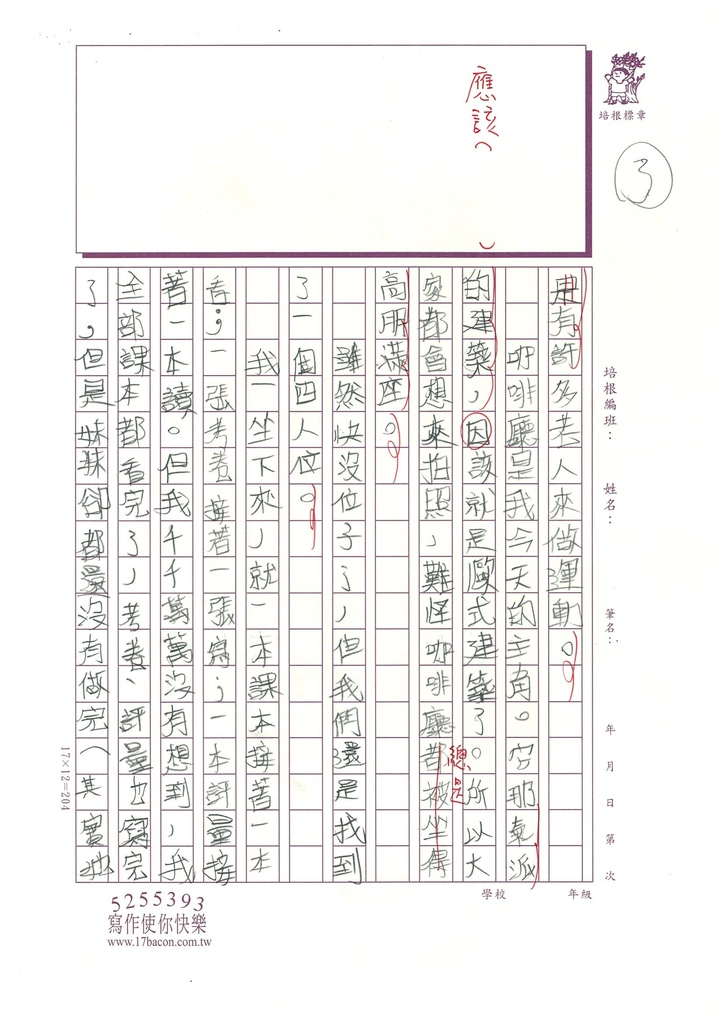 培根標章
3
應該(
)
康有許多老人來做運動。
咖啡廳是我今天的主角。它那氣派
的建築,因該就是歐式建築了。所以大
家都會想來拍照,難怪咖啡廳都被坐得
總是
高朋滿座。
雖然快沒位子了,但我們還是找到
了一個四人位。
我一坐下來,就一本課本接著一本
看;一張考卷接著一張寫;一本評量接
著一本讀。但我千千萬萬沒有想到,我
全部課本都看完了,考卷、評量也寫完
了,但是妹妹卻都還沒有做完(其實她
培根編班:
姓名:
筆名:
年 月 日 第 次
17×12=204
學校 年級
5255393
寫作使你快樂
www.17bacon.com.tw